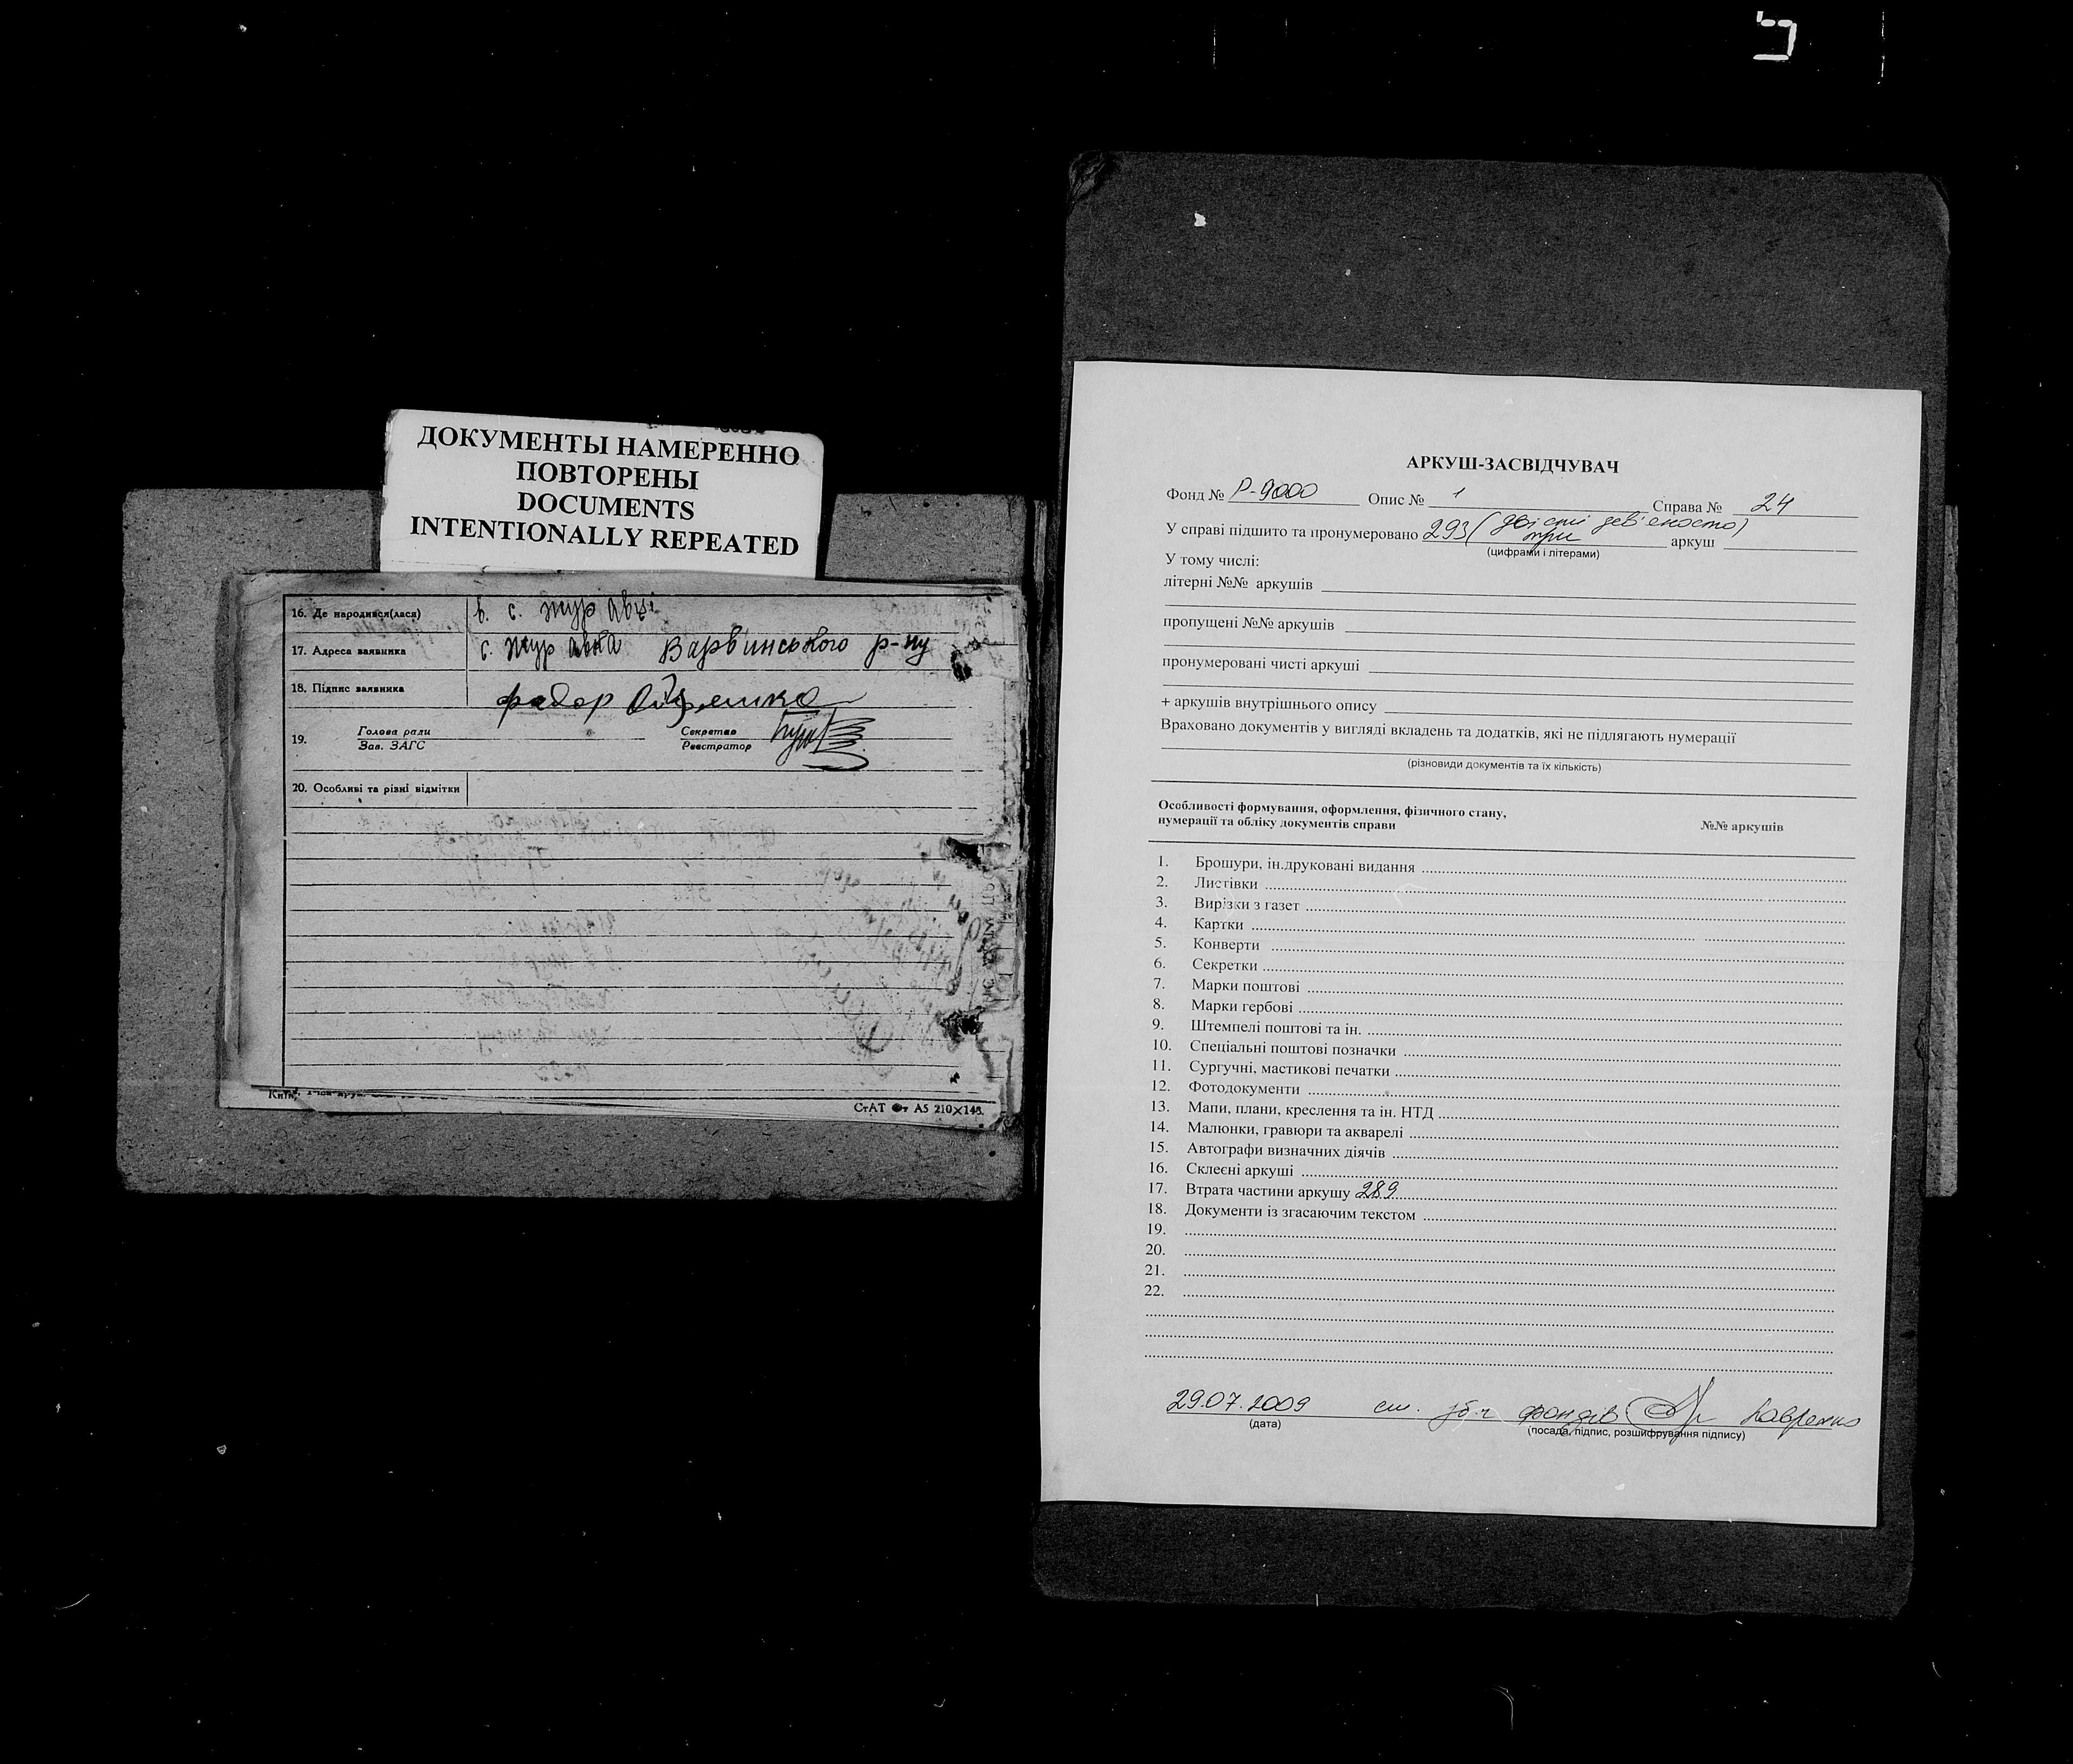 ДОКУМЕНТЫ НАМЕРЕННО
ПОВТОРЕНЫ
DOCUMENTS
INTENTIONALLY REPEATED
16. Де народився(лася) в с. Журавці
17. Адреса заявника с. Журавка Варвинського р-ну
18. Підпис заявника
19. Голова ради
Зав. ЗАГС
Секретар
Реєстратор
20. Особливі та різні відмітки
Київ,
СтАТ Фт А5 210×148.
АРКУШ-ЗАСВІДЧУВАЧ
Фонд № Р-9000 Опис № 1 Справа № 24
У справі підшито та пронумеровано 293 (двісті дев'яносто) аркуш
три
(цифрами і літерами)
У тому числі:
літерні №№ аркушів
пропущені №№ аркушів
пронумеровані чисті аркуші
+ аркушів внутрішнього опису
Враховано документів у вигляді вкладень та додатків, які не підлягають нумерації
(різновиди документів та їх кількість)
Особливості формування, оформлення, фізичного стану,
нумерації та обліку документів справи №№ аркушів
1. Брошури, ін.друковані видання
2. Листівки
3. Вирізки з газет
4. Картки
5. Конверти
6. Секретки
7. Марки поштові
8. Марки гербові
9. Штемпелі поштові та ін.
10. Спеціальні поштові позначки
11. Сургучні, мастикові печатки
12. Фотодокументи
13. Мапи, плани, креслення та ін. НТД
14. Малюнки, гравюри та акварелі
15. Автографи визначних діячів
16. Склеєні аркуші
17. Втрата частини аркушу 289
18. Документи із згасаючим текстом
19.
20.
21.
22.
29.07.2009 ст. зб-ч фондів
(дата)
(посада, підпис, розшифрування підпису)